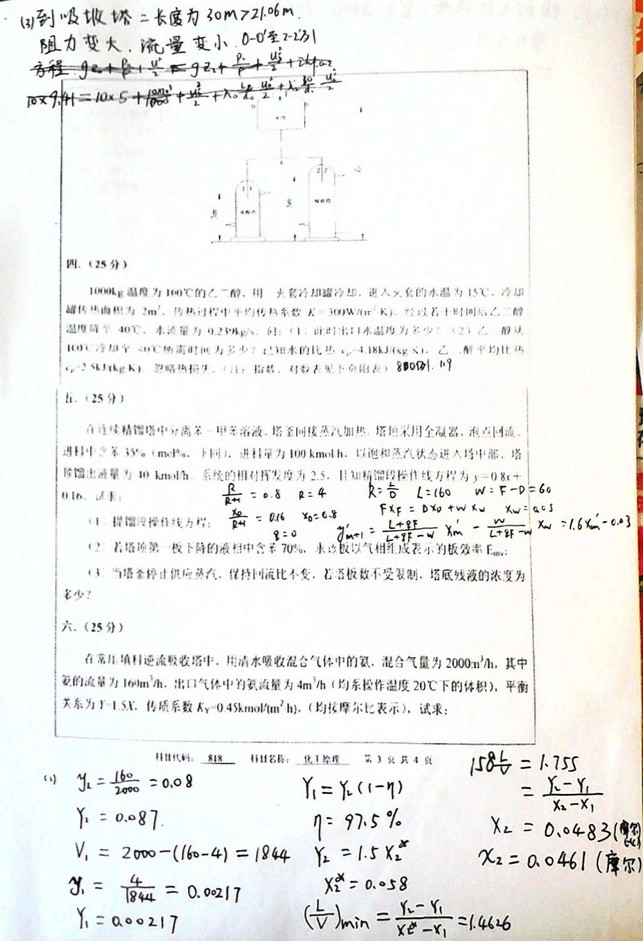 (3)到吸收塔二长度为30m>21.06m.
阻力变大,流量变小.0-0'至2-2'列
方程:
四.(25分)
1000kg 温度为100℃的乙二醇,用一夹套冷却罐冷却,进入夹套的水温为15℃,冷却
罐传热面积为2m²,传热过程中平均传热系数 K=300W/(m² K),经过若干时间后乙二醇
温度降至40℃,水流量为0.239kg/s,问:(1)此时出口水温度为多少?(2)乙二醇从
100℃冷却至40℃所需时间为多少?已知水的比热 cp=4.18kJ/(kg K),乙二醇平均比热
cp=2.5kJ/(kg K),忽略热损失。(注:指数、对数表见下页附表)
五.(25分)
在连续精馏塔中分离苯-甲苯溶液。塔釜间接蒸汽加热,塔顶采用全凝器,泡点回流。
进料中含苯35%(mol%,下同),进料量为100 kmol/h,以饱和蒸汽状态进入塔中部,塔
顶馏出液量为40 kmol/h,系统的相对挥发度为2.5,且知精馏段操作线方程为y=0.8x+
0.16,试求:
R/(R+1) = 0.8 R=4 R=L/D L=160 W=F-D=60
(1)提馏段操作线方程;
xD/(R+1) = 0.16 xD=0.8 FxF=DxD+WxW xW=0.05
q=0 y'm+1 = (L+qF)/(L+qF-W) x'm - W/(L+qF-W) xW =1.6x'm-0.03
(2)若塔顶第一板下降的液相中含苯70%,求该板以气相组成表示的板效率Emv;
(3)当塔釜停止供应蒸汽,保持回流比不变,若塔板数不受限制,塔底残液的浓度为
多少?
六.(25分)
在常压填料逆流吸收塔中,用清水吸收混合气体中的氨,混合气量为2000m³/h,其中
氨的流量为160m³/h,出口气体中的氨流量为4m³/h(均系操作温度20℃下的体积),平衡
关系为Y=1.5X,传质系数KY=0.45kmol/(m² h),(均按摩尔比表示),试求:
科目代码: 818 科目名称: 化工原理 第 3 页 共 4 页
(1) y₂ = 160/2000 = 0.08
Y₂ = 0.087.
V₁ = 2000-(160-4) = 1844
y₁ = 4/1844 = 0.00217
Y₁ = 0.00217
Y₁ = Y₂(1-η)
η = 97.5%
Y₂ = 1.5X₂*
X₂* = 0.058
(L/V)min = (Y₂-Y₁)/(X₂*-X₁) = 1.4626
L/V = 1.755
= (Y₂-Y₁)/(X₂-X₁)
X₂ = 0.0483(摩尔比)
x₂ = 0.0461(摩尔)